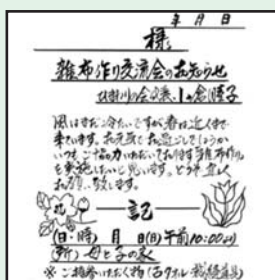 年 月 日
様
雑布作り交流会のお知らせ
会長 小倉
風はまだ冷たいですが春は近くまで
来ています。お元気でお過ごしでしょうか
いつもご協力いただいております雑布作り
を実施したいと思います。どうぞ宜しく
お願い致します。
記
(日・時) 月 日(日)午前10:00より
(所) 母と子の家
※ ご持参いただく物(古タオル 裁縫道具)